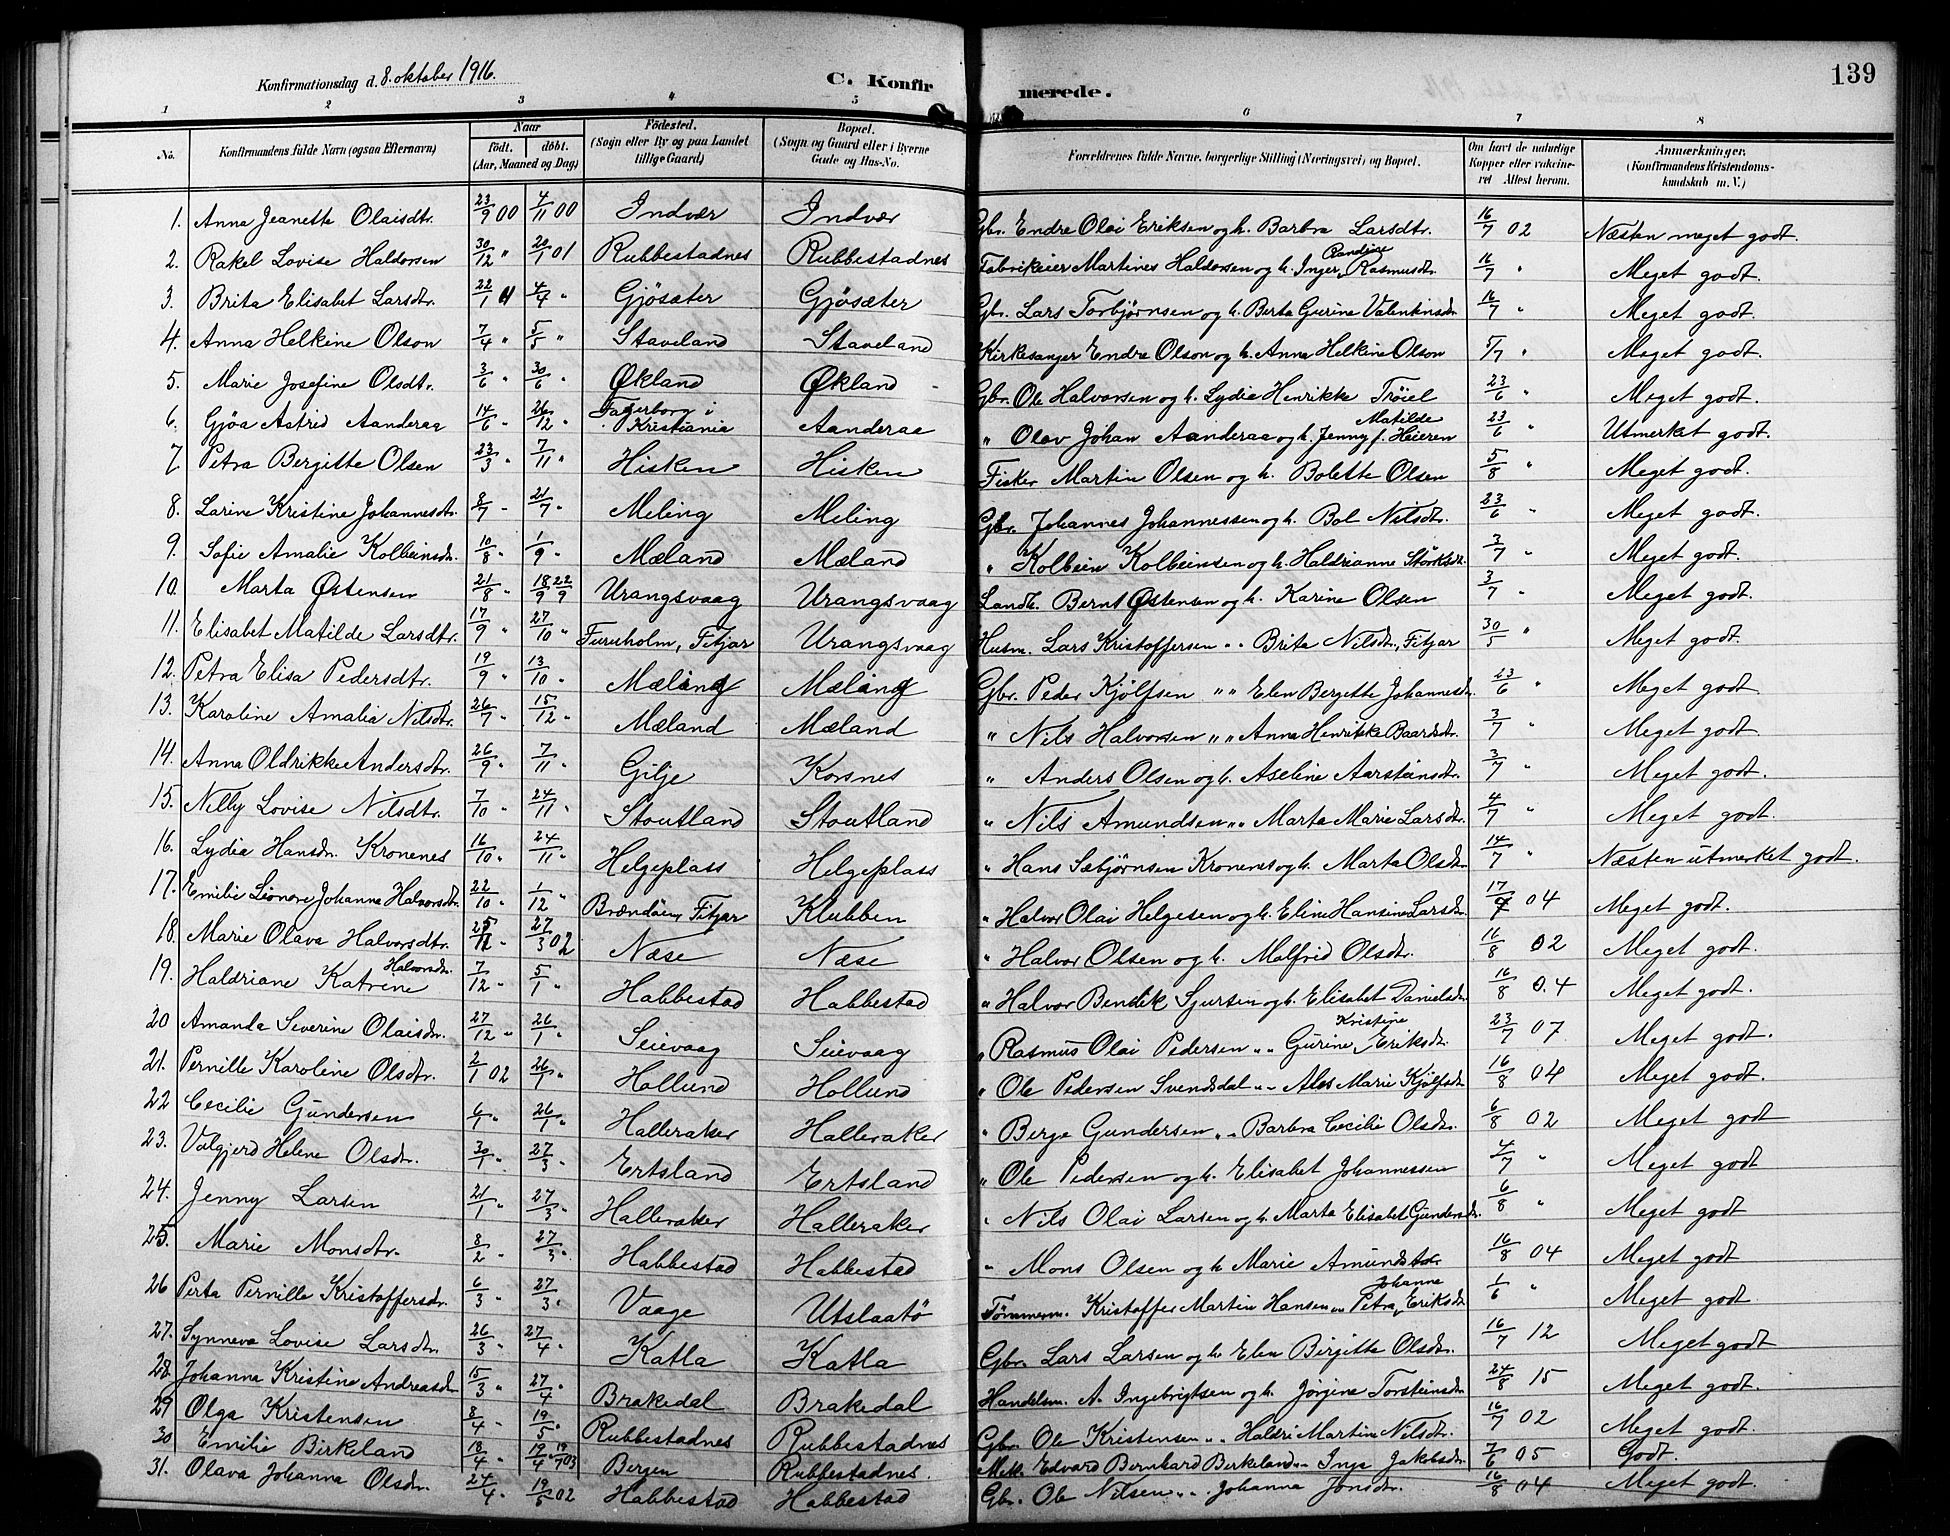 Konfirmationsdag d. 8. oktober 1916.
C. Konfirmerede.
139
1 2 3 4 5 6 7 8
No. Konfirmandens fulde Navn (ogsaa Efternavn) Naar født. døbt. (Aar, Maaned og Dag) Fødested. (Sogn eller By og paa Landet tillige Gaard) Bopæl. (Sogn og Gaard eller i Byerne Gade og Hus-No. Forældrenes fulde Navne, borgerlige Stilling (Næringsvei) og Bopæl. Om havt de naturlige Kopper eller vaccineret Attest herom. Anmærkninger. (Konfirmandens Kristendomskundskab m. V.)
1. Anna Jeanette Olaisdtr. 23/9 00 4/11 00 Indvær Indvær Gbr. Endre Olai Eriksen og h. Barbra Larsdtr. 16/7 02 Næsten meget godt.
2. Rakel Lovise Haldorsen 30/12 " 20/1 01 Rubbestadnes Rubbestadnes Fabrikeier Martines Haldorsen og h. Inger Randine Rasmusdtr. 16/7 " Meget godt.
3. Brita Elisabet Larsdtr. 22/1 01 4/4 " Gjøsæter Gjøsæter Gbr. Lars Torbjørnsen og h. Berta Gurine Valentinsdr. 16/7 " Meget godt.
4. Anna Helkine Olson 7/4 " 5/5 " Staveland Staveland Kirkesanger Endre Olson og h. Anna Helkine Olson 5/7 " Meget godt.
5. Marie Josefine Olsdtr. 3/6 " 30/6 " Økland Økland Gbr. Ole Halvorsen og h. Lydia Henrikke Trøiel 23/6 " Meget godt.
6. Gjøa Astrid Aanderaa 14/6 " 26/12 " Fagerborg i Kristiania Aanderaa " Olav Johan Aanderaa og h. Jenny Matilde f. Heieren 23/6 " Utmerket godt.
7. Petra Bergitte Olsen 23/3 " 7/11 " Hisken Hisken Fisker Martin Olsen og h. Bolette Olsen 5/8 " Meget godt.
8. Larine Kristine Johannesdtr. 8/7 " 21/7 " Meling Meling Gbr. Johannes Johannessen og h. Bol Nilsdtr. 23/6 " Meget godt.
9. Sofie Amalie Kolbeinsdr. 10/8 " 1/9 " Mæland Mæland " Kolbein Kolbeinsen og h. Haldrianne Størksdr. 3/7 " Meget godt.
10. Marta Østensen 21/8 " 18/9 22/9 Urangsvaag Urangsvaag Landh. Bernt Østensen og h. Karine Olsen 3/7 " Meget godt.
11. Elisabet Matilde Larsdtr. 17/9 " 27/10 " Furuholm, Fitjar Urangsvaag Husm. Lars Kristoffersen " " Brita Nilsdtr, Fitjar 30/5 " Meget godt.
12. Petra Elisa Pedersdtr. 19/9 " 13/10 " Mæling Mæling Gbr. Peder Kjølfsen " " Elen Bergette Johannesdr. 23/6 " Meget godt
13. Karoline Amalia Nilsdtr. 26/7 " 15/12 " Mæland Mæland " Nils Halvorsen " " Anna Henrikke Baardsdtr. 3/7 " Meget godt.
14. Anna Oldrikke Andersdtr. 26/9 " 7/11 " Gilje Korsnes " Anders Olsen og h. Aseline Aarsteinsdtr. 3/7 " Meget godt.
15. Nilly Lovise Nilsdtr. 7/10 " 24/11 " Stoutland Stoutland " Nils Amundsen " " Marta Marie Larsdtr. 4/7 " Meget godt.
16. Lydia Hansdr. Kronenes 16/10 " 24/11 " Helgeplass Helgeplass " Hans Sæbjørnsen Kronenes og h. Marta Olsdtr. 14/7 " Næsten utmerket godt.
17. Emilie Leonore Johanna Halvorsdtr. 22/10 " 1/12 " Brændøen, Fitjar Klubben " Halvor Olai Helgesen og h. Eline Hansine Larsdr. 17/9 04 Meget godt.
18. Marie Olava Halvorsdtr. 25/12 " 27/3 02 Næse Næse " Halvor Olsen og h. Malfrid Olsdtr. 11/8 02 Meget godt.
19. Haldriane Katrine Halvorsdr. 7/12 " 5/1 " Habbestad Habbestad " Halvor Bendik Sjursen og h. Elisabet Danielsdr. 16/8 04 Meget godt.
20 Amanda Severine Olaisdr. 27/12 " 26/1 " Seievaag Seievaag " Rasmus Olai Pedersen " " Gurine Kristine Eriksdr. 23/7 07 Meget godt.
21. Pernille Karoline Olsdtr. 2/1 02 26/1 " Hollund Hollund " Ole Pedersen Svendsdal " " Ales Marie Kjølfsdr. 16/8 04 Meget godt.
22 Cecilie Gundersen 6/1 " 26/1 " Halleraker Halleraker " Berge Gundersen " " Barbra Cecilie Olsdtr. 6/8 02 Meget godt
23. Valgjerd Helene Olsdr. 30/1 " 27/3 " Ertsland Ertsland " Ole Pedersen og h. Elisabet Johannessen 4/7 " Meget godt
24. Jenny Larsen 21/1 " 27/3 " Halleraker Halleraker " Nils Olai Larsen og h. Marta Elisabet Gundersdr. 6/8 " Meget godt
25. Marie Monsdtr. 8/2 " 27/3 " Habbestad Habbestad " Mons Olsen og h. Marie Amundsdtr. 16/8 04 Meget godt
26 Perta Pernille Kristoffersdr. 6/3 " 27/3 " Vaage Utslaatø Tømmerm. Kristoffer Martin Hansen " " Petra Johanna Eriksdr. 1/6 " Meget godt.
27. Synneva Lovise Larsdtr. 26/3 " 27/4 " Katla Katla Gbr. Lars Larsen og h. Elen Birgitte Olsdtr. 16/7 12 Meget godt
28. Johanna Kristine Andreasdr. 15/3 " 27/4 " Brakedal Brakedal Handelsm. A. Ingebrigtsen og h. Jørgine Torsteinsdr. 24/8 15 Meget godt.
29 Olga Kristensen 8/4 " 19/5 " Rubbestadnes Rubbestadnes Gbr. Ole Kristensen " " Haldri Martine Nilsdtr. 16/7 02 Meget godt.
30 Emilie Birkeland 18/4 " 19/4 19/7 03 Bergen Rubbestadnes. Mek. Edvard Bernhard Birkeland " " Inga Jakobsdr. 7/6 05 Godt.
31. Olava Johanna Olsdr. 24/4 " 19/5 02 Habbestad Habbestad Gbr. Ole Nilsen " " Johanna Jonsdtr. 16/8 04 Meget godt.